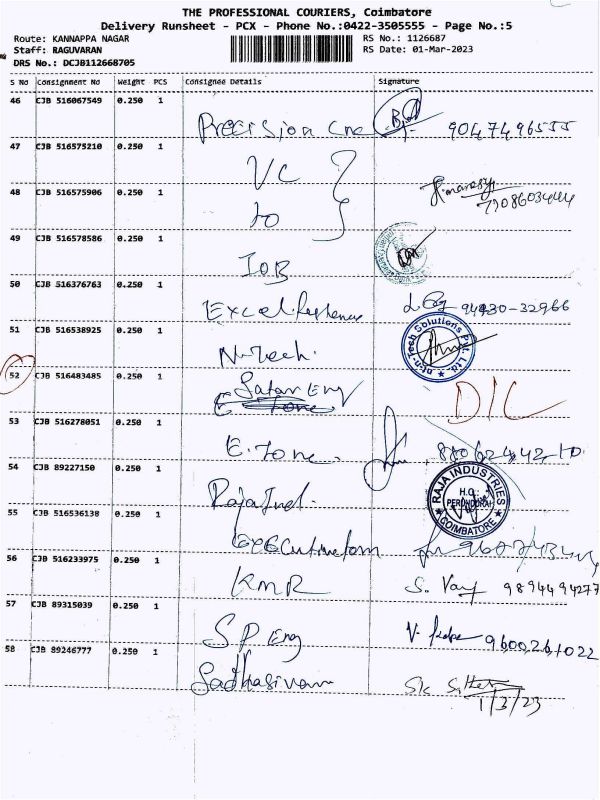 THE PROFESSIONAL COURIERS, Coimbatore
Delivery Runsheet - PCX - Phone No.:0422-3505555 - Page No.:5
Route: KANNAPPA NAGAR RS No.: 1126687
Staff: RAGUVARAN RS Date: 01-Mar-2023
DRS No.: DCJB112668705
S No Consignment No Weight PCS Consignee Details Signature
46 CJB 516067549 0.250 1
Precision 9047496555
47 CJB 516575210 0.250 1
VC
48 CJB 516575906 0.250 1
to 7708603444
49 CJB 516578586 0.250 1
IOB
50 CJB 516376763 0.250 1
Excel 94430-32966
51 CJB 516538925 0.250 1
N-Tech. n-Tech Solutions Pvt. Ltd.
52 CJB 516483485 0.250 1
Eng D/C
53 CJB 516278051 0.250 1
E. Tone.
54 CJB 89227150 0.250 1
Raja Ind. RAJA INDUSTRIES H.O. PERUNDURAI COIMBATORE
55 CJB 516536138 0.250 1
56 CJB 516233975 0.250 1
KMR S. 9894494277
57 CJB 89315039 0.250 1
SP Eng V. 9600261022
58 CJB 89246777 0.250 1
Sadhasivam SK
1/3/23